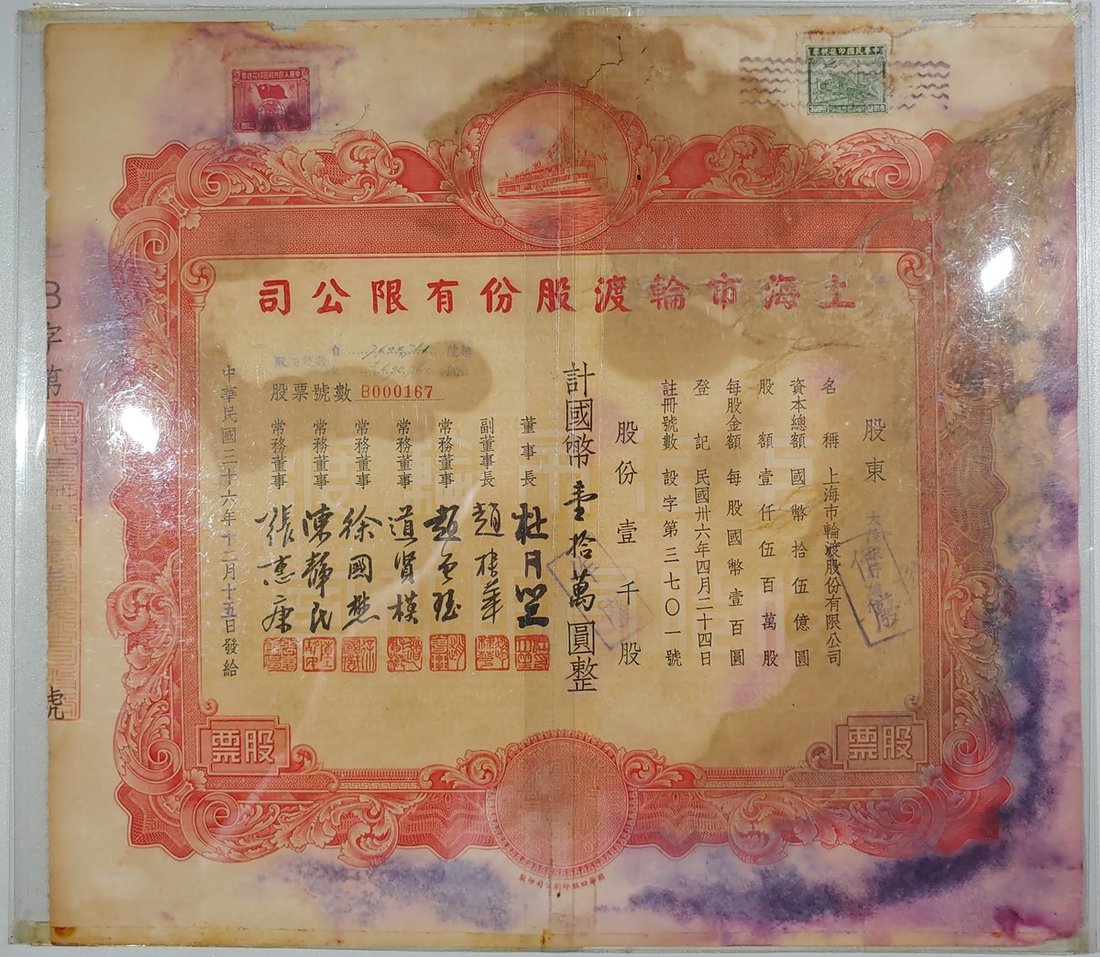 中華人民共和國印花稅票
中華民國印花稅票
上海市輪渡股份有限公司
股東
名稱 上海市輪渡股份有限公司
資本總額 國幣拾伍億圓
股額 壹仟伍百萬股
每股金額 每股國幣壹百圓
登記 民國卅六年四月二十四日
註冊號數 設字第三七〇一號
股份壹千股
計國幣壹拾萬圓整
股票號數 B000167
董事長 杜月笙
副董事長 趙棣華
常務董事
常務董事
常務董事 徐國懋
常務董事 陳靜民
常務董事 張惠康
中華民國三十六年十二月十五日發給
B字第
號
股票
股票